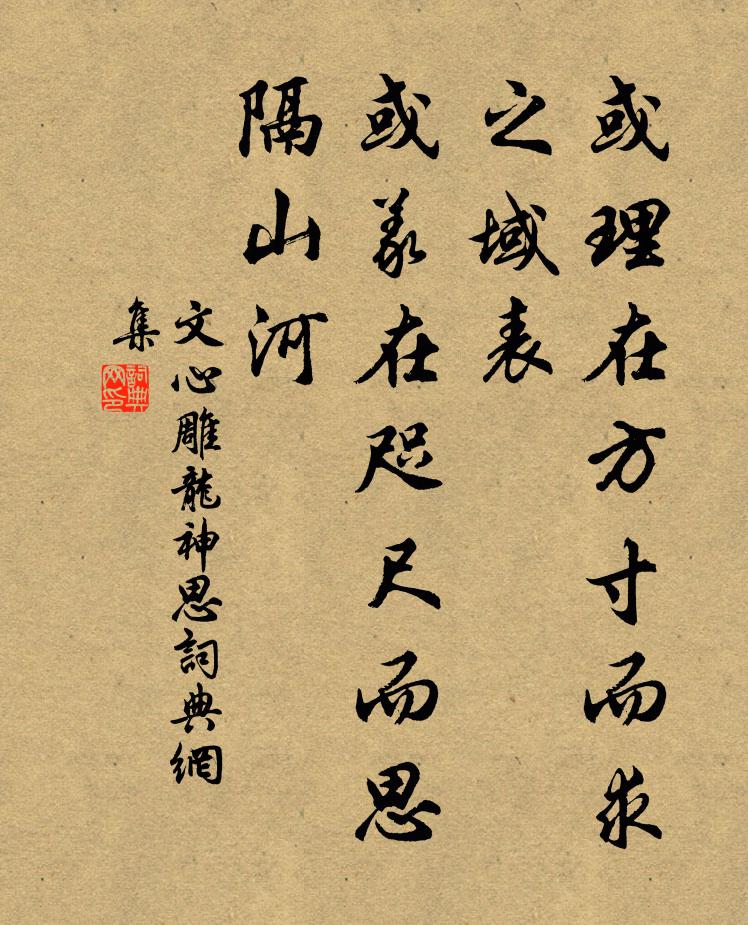 或理在方寸而求
之域表
或義在咫尺而思
隔山河
文心雕龍神思詞典網
集
詞典
网印